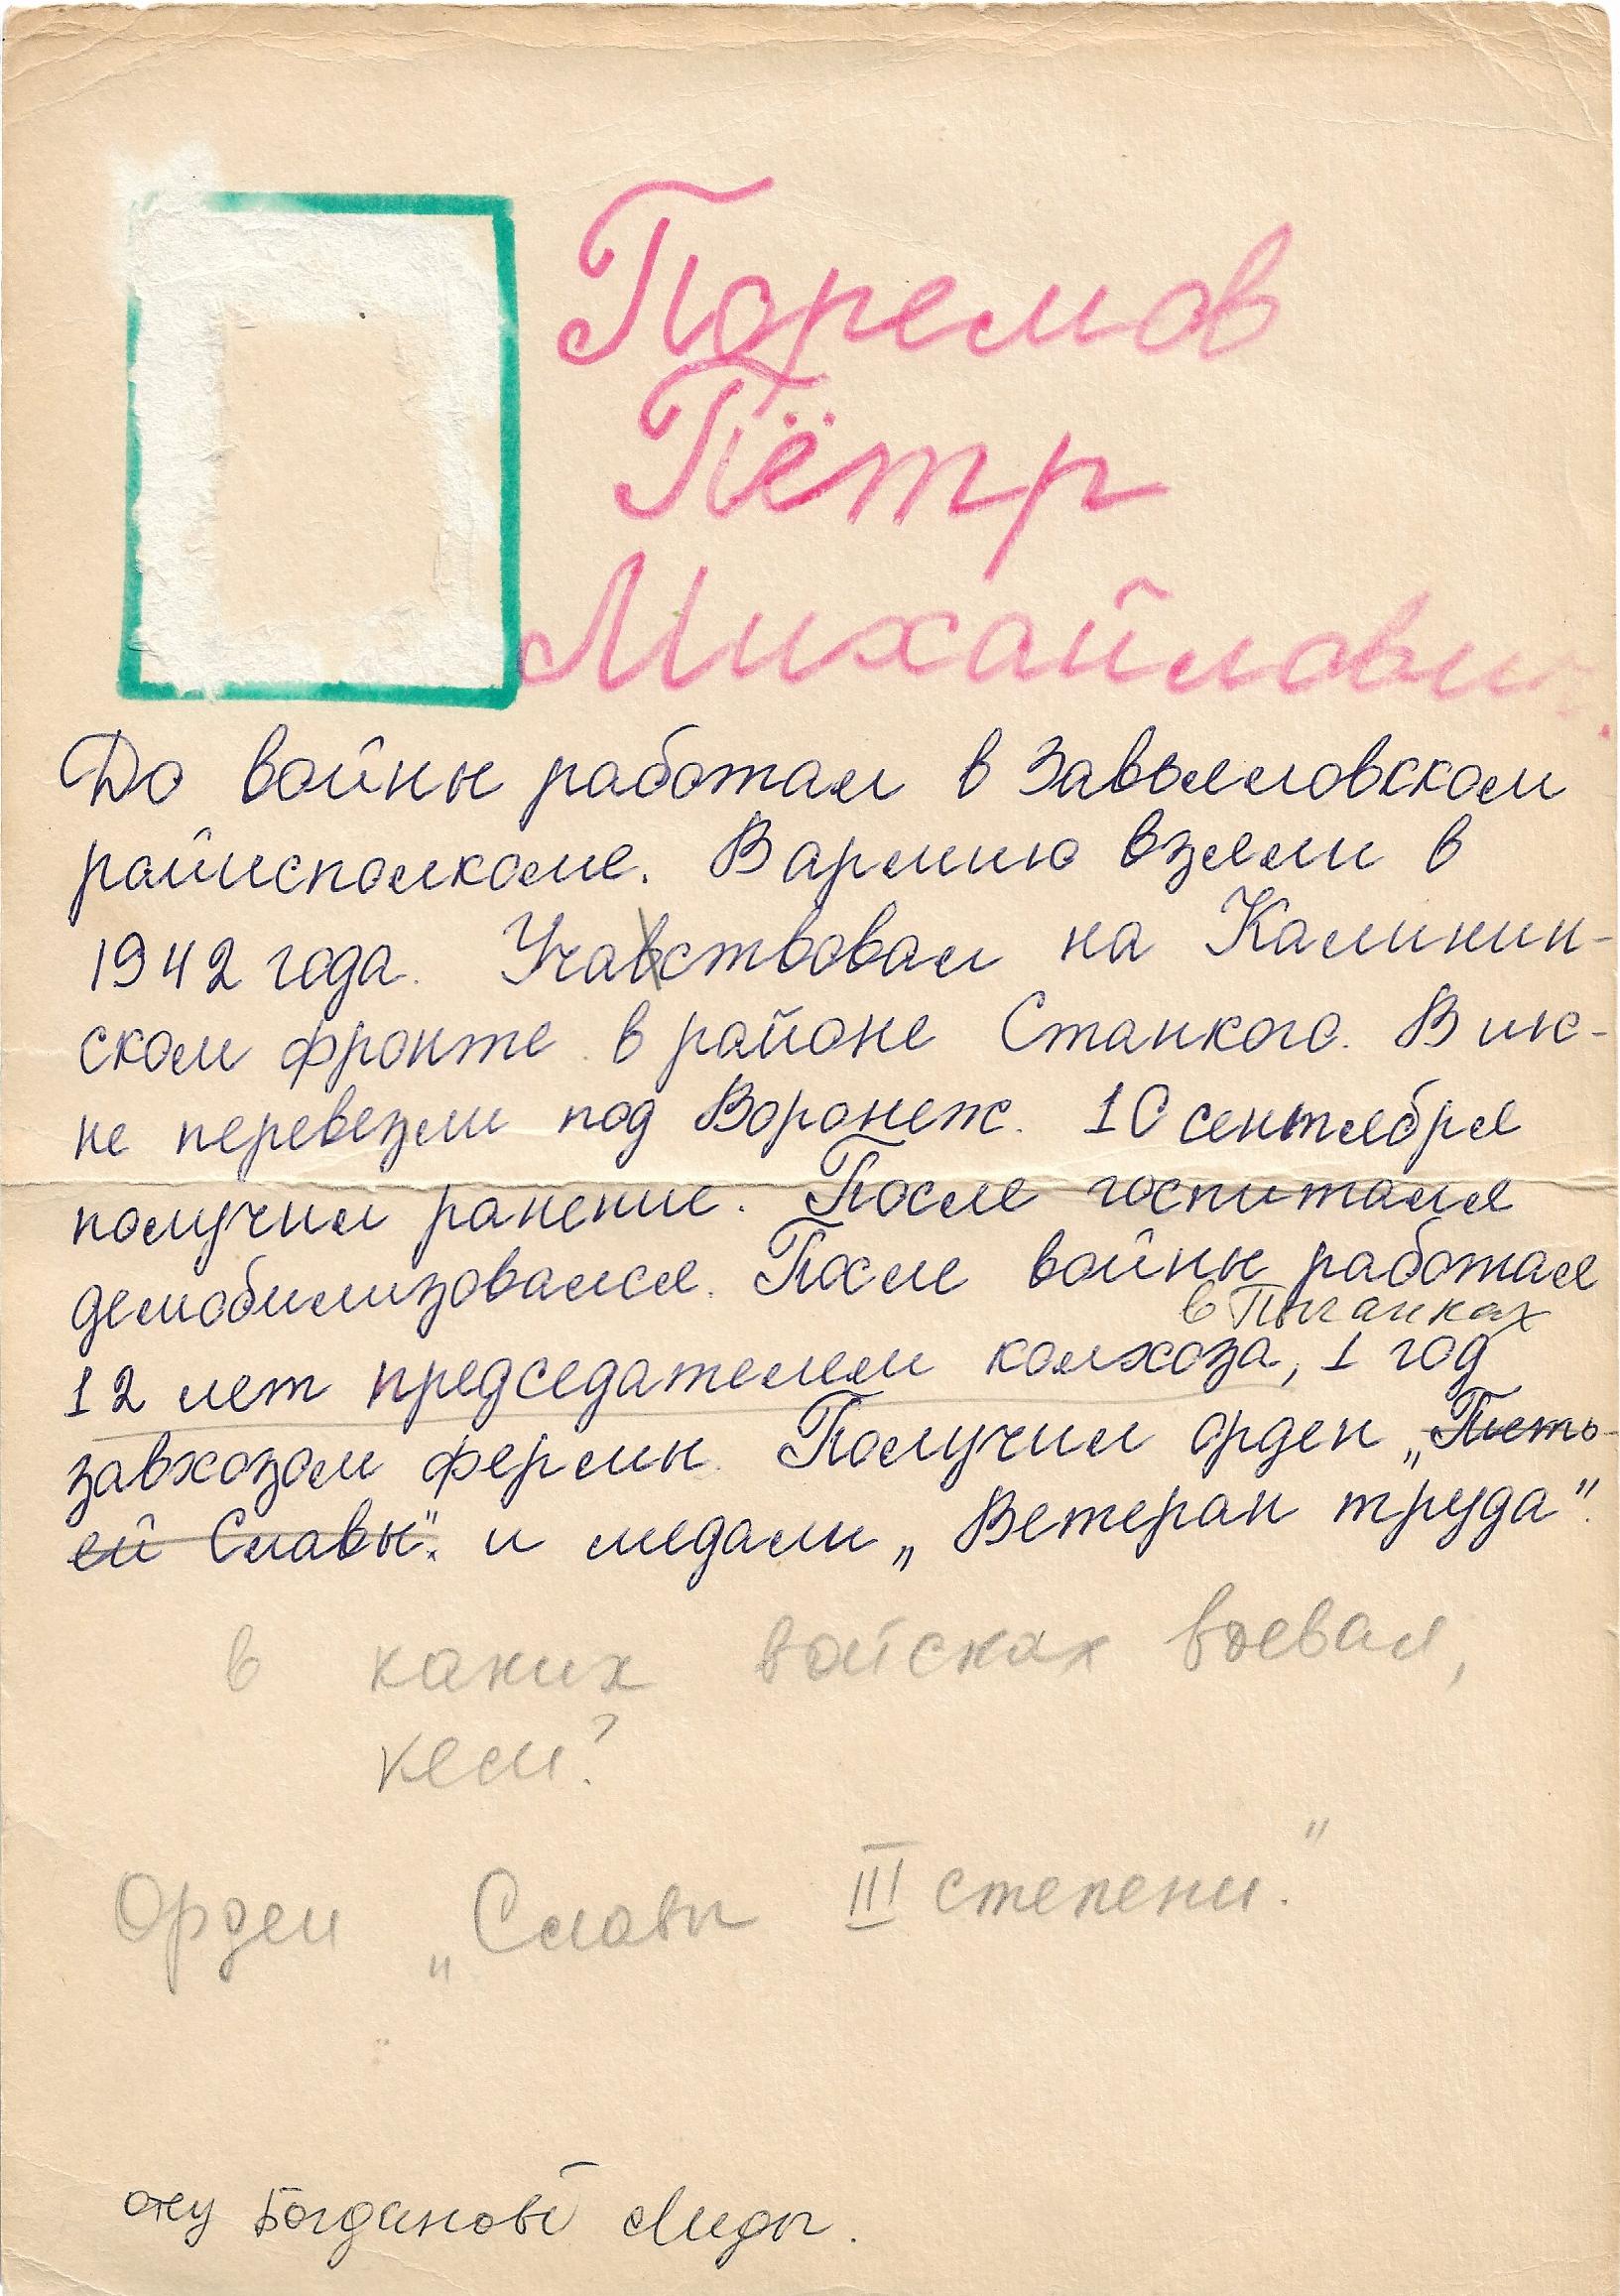 Поремов
Пётр
Михайлович.
До войны работал в Завьяловском
райисполкоме. В армию взяли в
1942 года. Учавствовал на Калинин-
ском фронте в районе Станкого. В ию-
не перевезли под Воронеж. 10 сентября
получил ранение. После госпиталя
демобилизовался. После войны работал
в Пыганках
12 лет председателем колхоза, 1 год
завхозом фермы. Получил орден „
ей Славы". и медали „Ветеран труда".
в каких войсках воевал,
кем?
Орден „Славы III степени."
Богдановой Лиды.